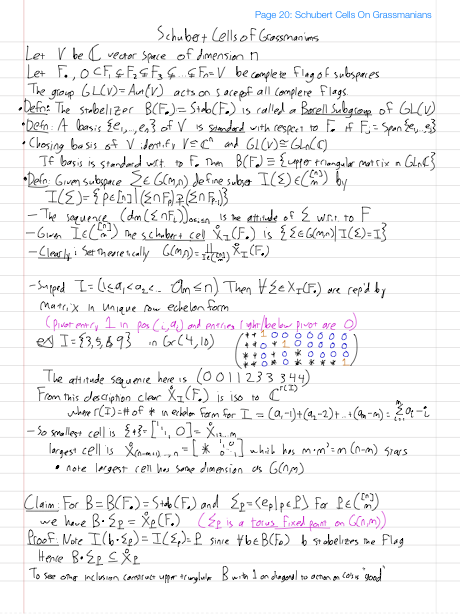 Page 20: Schubert Cells On Grassmanians
Schubert Cells of Grassmanians
Let V be ℂ vector space of dimension n
Let F., 0 ⊂ F₁ ⊊ F₂ ⊊ F₃ ⊊ ... ⊊ Fₙ = V be complete flag of subspaces
The group GL(V) = Aut(V) acts on space of all complete flags
• Defn: The stabelizer B(F.) = Stab(F.) is called a Borell Subgroup of GL(V)
• Defn: A basis {e₁,...,eₙ} of V is standard with respect to F. if Fᵢ = Span{e₁..eᵢ}
• Chosing basis of V identify V ≅ ℂⁿ and GL(V) ≅ GLn(ℂ)
If basis is standard w.r.t. to F. then B(F.) ≅ {upper triangular matrix in GLnℂ}
• Defn: Given subspace Σ ∈ G(m,n) define subset I(Σ) ∈ ([n] m) by
I(Σ) = {p ∈ [n] | (Σ∩Fₚ) ⊋ (Σ∩Fₚ₋₁)}
- The sequence (dim(Σ∩Fᵢ))₀≤ᵢ≤ₙ is the attitude of Σ w.r.t. to F
- Given I ∈ ([n] m) the schubert cell X̊_I(F.) is {Σ ∈ G(m,n) | I(Σ) = I}
- Clearly: Set theoretically G(m,n) = ⨆_{I∈([n] m)} X̊_I(F.)
I = (1≤a₁<a₂<... aₘ≤n) Then ∀ Σ ∈ X_I(F.) are rep'd by
matrix in unique row echelon form
(pivot entry 1 in pos (i,aᵢ) and entries right/below pivot are 0)
I = in Gr(4,10)
The attitude sequence here is (0 0 1 1 2 3 3 3 4 4)
From this description clear X̊_I(F.) is iso to ℂ^{r(I)}
where r(I) = # of * in echelon form for I = (a₁-1)+(a₂-2)+..+(aₘ-m) = Σ aᵢ-i
- So smallest cell is {*} = [¹·₁ 0] = X̊₁₂..ₘ
largest cell is X̊₍ₙ₋ₘ₊₁₎...ₙ = which has stars
• note largest cell has same dimension as G(n,m)
Claim: For B = B(F.) = Stab(F.) and Σ_P = <eₚ | p ∈ P> for P ∈ ([n] m)
we have B·Σ_P = X̊_P(F.) (Σ_P is a torus fixed point on G(n,m))
Proof: Note I(b·Σ_P) = I(Σ_P) = P since ∀ b ∈ B(F.) b stabelizes the flag
Hence B·Σ_P ⊆ X̊_P
To see other inclusion construct upper triangular B with 1 on diagonal to action on cols is "good"